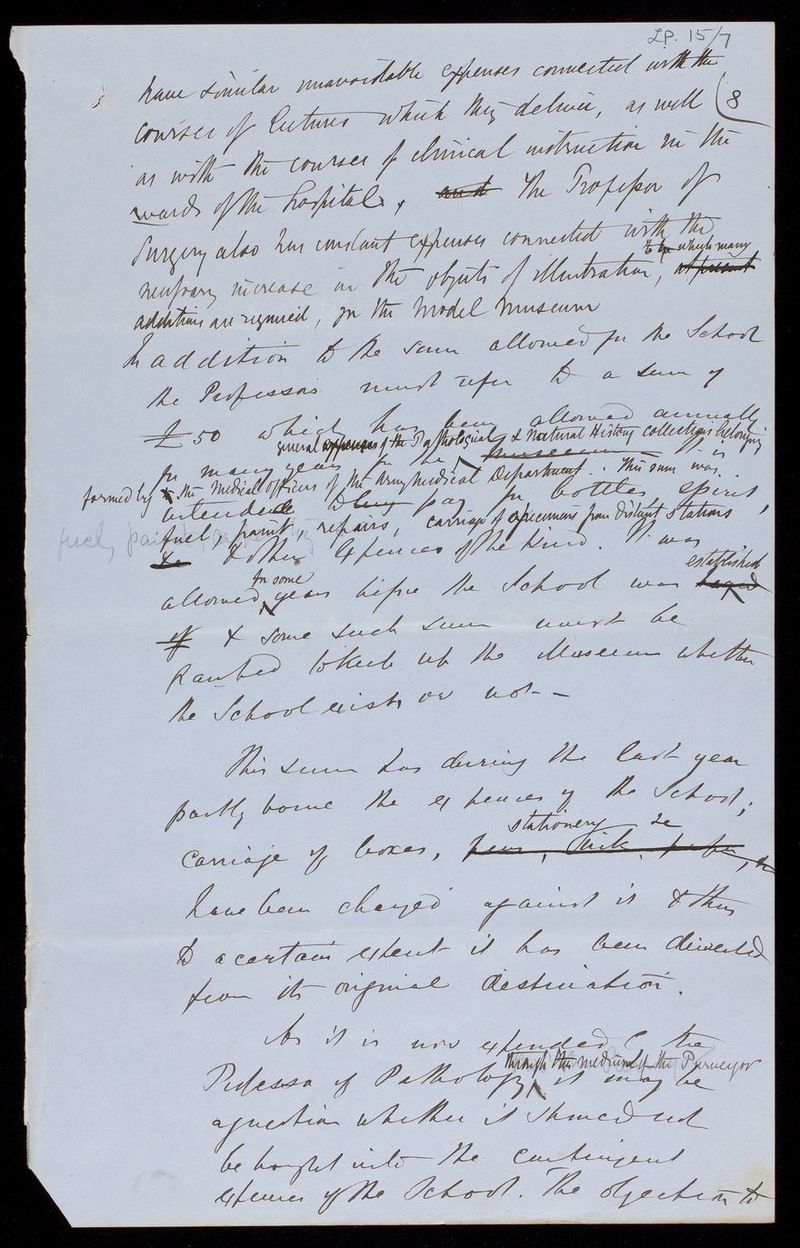 L.P. 15/7
8
have similar unavoidable expenses connected with the
courses of lectures which they deliver, as well
as with the courses of clinical instruction in the
wards of the hospital, and the Professor of
Surgery also has constant expenses connected with the
necessary increase in the objects of illustration, at present
to which many
additions are required, for the Model Museum
In addition to the sum allowed for the School
the Professors must refer to a sum of
£50 which has been allowed annually
general expenses of the Pathological & Natural History collections belonging
for many years for the museum It is
formed by the Medical officers of the Army Medical Department. This sum was
intended to pay for bottles, spirit,
fuel, paint, repairs, carriage of specimens from distant stations
fuel, paint,
&c & other expences of the kind. It was
for some established
allowed years before the School was
& some such sum must be
granted to keep up the Museum whether
the School exists or not—
This sum has during the last year
partly borne the expences of the School;
stationery &c
carriage of boxes, pens, ink, paper, &c
have been charged against it & thus
to a certain extent it has been diverted
from its original destination.
As it is now expended by the
through the medium of the Purveyor
Professor of Pathology, it may be
a question whether it should not
be brought into the contingent
expences of the School. The objection to